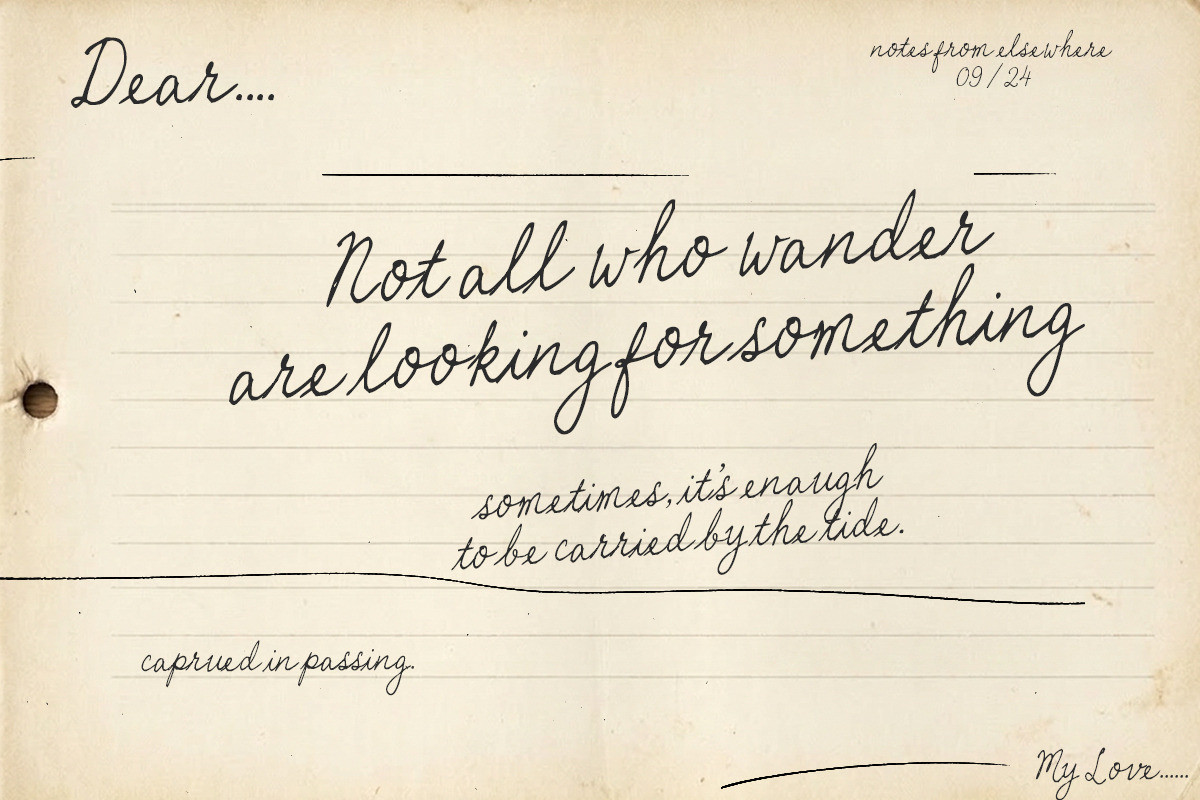 Dear....
notes from elsewhere
09/24
Not all who wander
are looking for something
sometimes, it's enough
to be carried by the tide.
caprued in passing.
My Love......